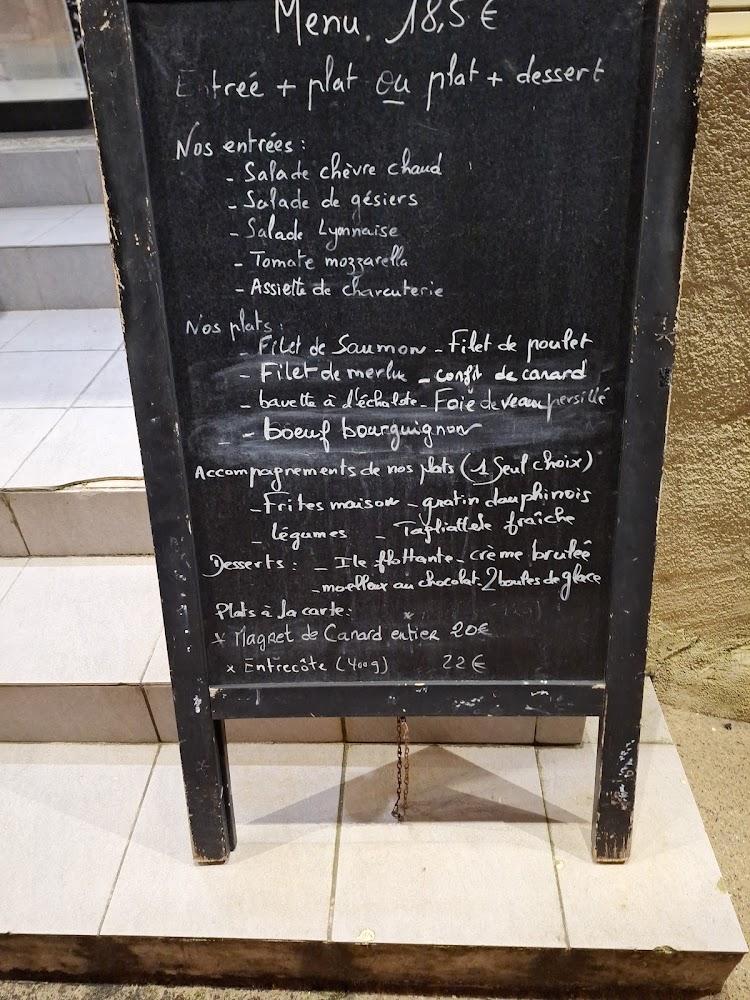 Menu. 18,5 €
Entreé + plat ou plat + dessert
Nos entrées :
- Salade chèvre chaud
- Salade de gésiers
- Salade Lyonnaise
- Tomate mozzarella
- Assiette de charcuterie
Nos plats :
- Filet de Saumon - Filet de poulet
- Filet de merlu - confit de canard
- bavette à l'échalote - Foie de veau persillé
- boeuf bourguignon
Accompagnements de nos plats (1 Seul choix)
- Frites maison - gratin dauphinois
- légumes - Tagliattele fraîche
Desserts : - Ile flottante - crème bruleê
- moelleux au chocolat - 2 boules de glace
Plats à la carte :
* Magret de Canard entier 20€
* Entrecôte (400g) 22 €